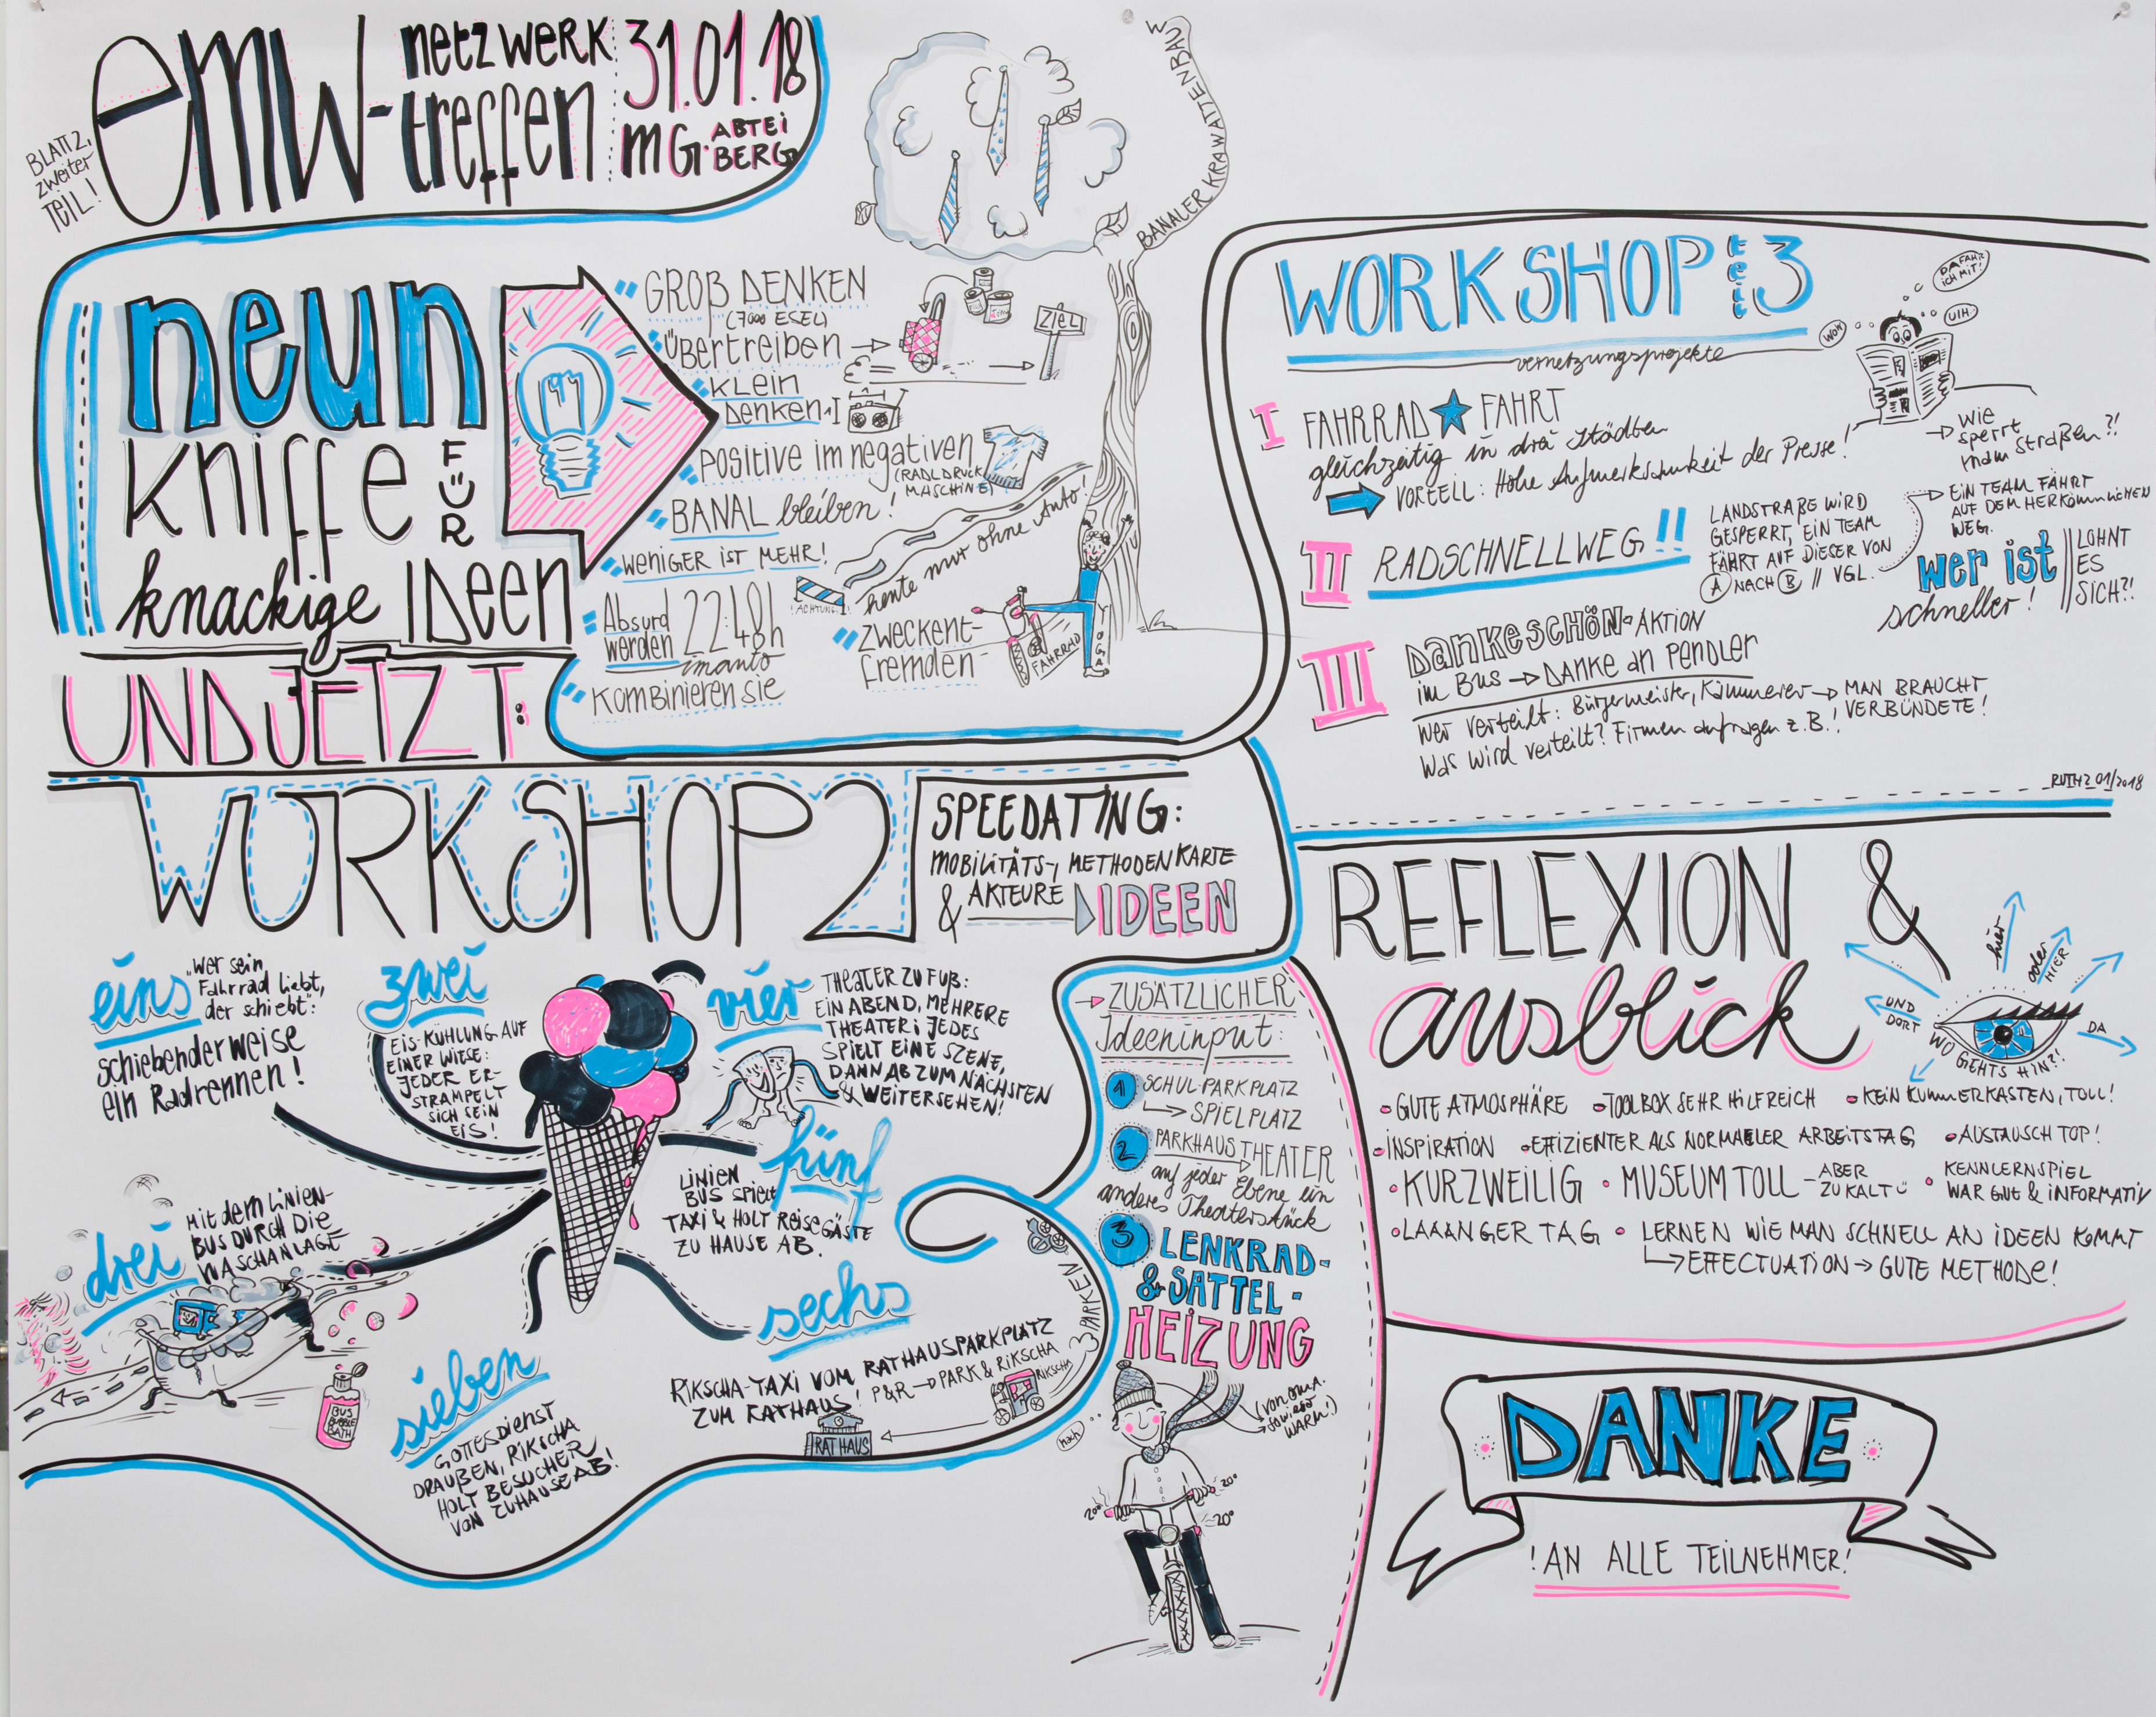 BLATT 2,
zweiter
TEIL!
emw-
netzwerk
treffen
31.01.18
MG. ABTEI
BERG
neun
kniffe FÜR
knackige IDEEN
GROß DENKEN
(7000 ESEL)
Übertreiben
KLEIN
Denken
positive im negativen
(RADLDRUCK
MASCHINE)
BANAL bleiben!
WENIGER IST MEHR!
Absurd
werden
22:48h
imanto
KOMBINIEREN SIE
ZWECKENT-
fremden
ZIEL
BANALER KRAWATTENBAUM
!ACHTUNG!
heute nur ohne Auto!
FAHRRAD
YOGA
UND JETZT:
WORKSHOP 2
SPEEDATING:
MOBILITÄTS-, METHODENKARTE
& AKTEURE
IDEEN
eins
"Wer sein
Fahrrad liebt,
der schiebt":
schiebenderweise
ein Radrennen!
zwei
EIS-KÜHLUNG AUF
EINER WIESE:
JEDER ER-
STRAMPELT
SICH SEIN
EIS!
drei
MIT dem LINIEN-
BUS DURCH DIE
WASCHANLAGE
BUS
BUBBLE
BATH
vier
THEATER ZU FUß:
EIN ABEND, MEHRERE
THEATER; JEDES
SPIELT EINE SZENE,
DANN AB ZUM NÄCHSTEN
& WEITERSEHEN!
fünf
LINIEN
BUS SPIELT
TAXI & HOLT REISEGÄSTE
ZU HAUSE AB.
sechs
RIKSCHA-TAXI VOM RATHAUSPARKPLATZ
ZUM RATHAUS!
P&R → PARK & RIKSCHA
PARKEN
RIKSCHA
RATHAUS
sieben
GOTTESDIENST
DRAUßEN, RIKSCHA
HOLT BESUCHER
VON ZUHAUSE AB!
ZUSÄTZLICHER
Ideeninput:
1 SCHUL-PARKPLATZ
SPIELPLATZ
2 PARKHAUS THEATER
auf jeder Ebene ein
anderes Theaterstück
3 LENKRAD-
& SATTEL-
HEIZUNG
(VON OMA.
sowieso
WARM!)
20°
20°
20°
WORKSHOP teil 3
vernetzungsprojekte
DA FAHR
ICH MIT!
WOW
UIH
I FAHRRAD ★ FAHRT
gleichzeitig in drei Städten
VORTEIL: Hohe Aufmerksamkeit der Presse!
WIE
sperrt
man Straßen?!
II RADSCHNELLWEG!!
LANDSTRAßE WIRD
GESPERRT, EIN TEAM
FÄHRT AUF DIESER VON
A NACH B // VGL.
EIN TEAM FÄHRT
AUF DEM HERKÖMMLICHEN
WEG.
wer ist
schneller!
LOHNT
ES
SICH?!
III DANKESCHÖN-AKTION
im Bus → DANKE an Pendler
Wer verteilt: Bürgermeister, Kämmerer → MAN BRAUCHT
VERBÜNDETE!
Was wird verteilt? Firmen anfragen z.B.!
RUTH 2_01/2018
REFLEXION &
ausblick
hier
oder
HIER
UND
DORT
DA
WO GEHTS HIN?!
GUTE ATMOSPHÄRE - TOOLBOX SEHR HILFREICH • KEIN KUMMERKASTEN, TOLL!
INSPIRATION • EFFIZIENTER ALS NORMALER ARBEITSTAG • AUSTAUSCH TOP!
• KURZWEILIG • MUSEUM TOLL - ABER
ZU KALT
• KENNLERNSPIEL
WAR GUT & INFORMATIV
• LAAANGER TAG • LERNEN WIE MAN SCHNELL AN IDEEN KOMMT
EFFECTUATION → GUTE METHODE!
DANKE
!AN ALLE TEILNEHMER!